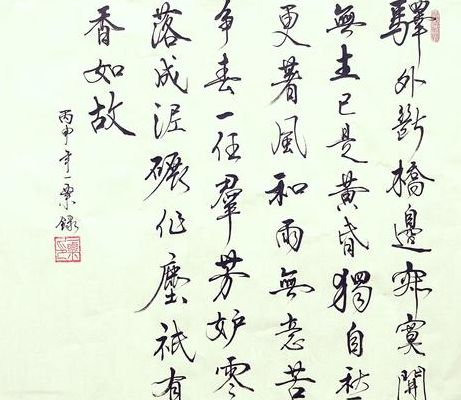 驛外斷橋邊寂寞開
無主已是黃昏獨自愁
更著風和雨無意苦
爭春一任羣芳妒零
落成泥碾作塵祇有
香如故
丙申年一粟錄